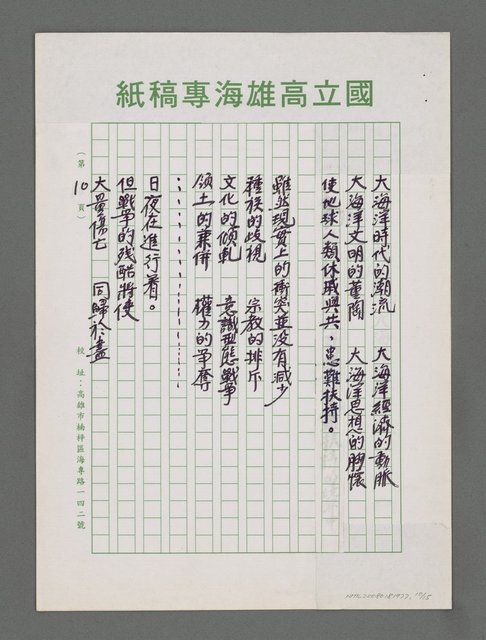 國立高雄海專稿紙
大海洋時代的潮流　大海洋經濟的動脈
大海洋文明的薰陶　大海洋思想的胸懷
使地球人類休戚與共，患難扶持。
雖然現實上的衝突並没有減少
種族的歧視　宗教的排斥
文化的傾軋　意識型態戰爭
領土的兼併　權力的爭奪
…………………
日夜在進行着。
但戰爭的残酷將使
大量傷亡　同歸於盡
（第10頁）
校址：高雄市楠梓區海專路一四二號